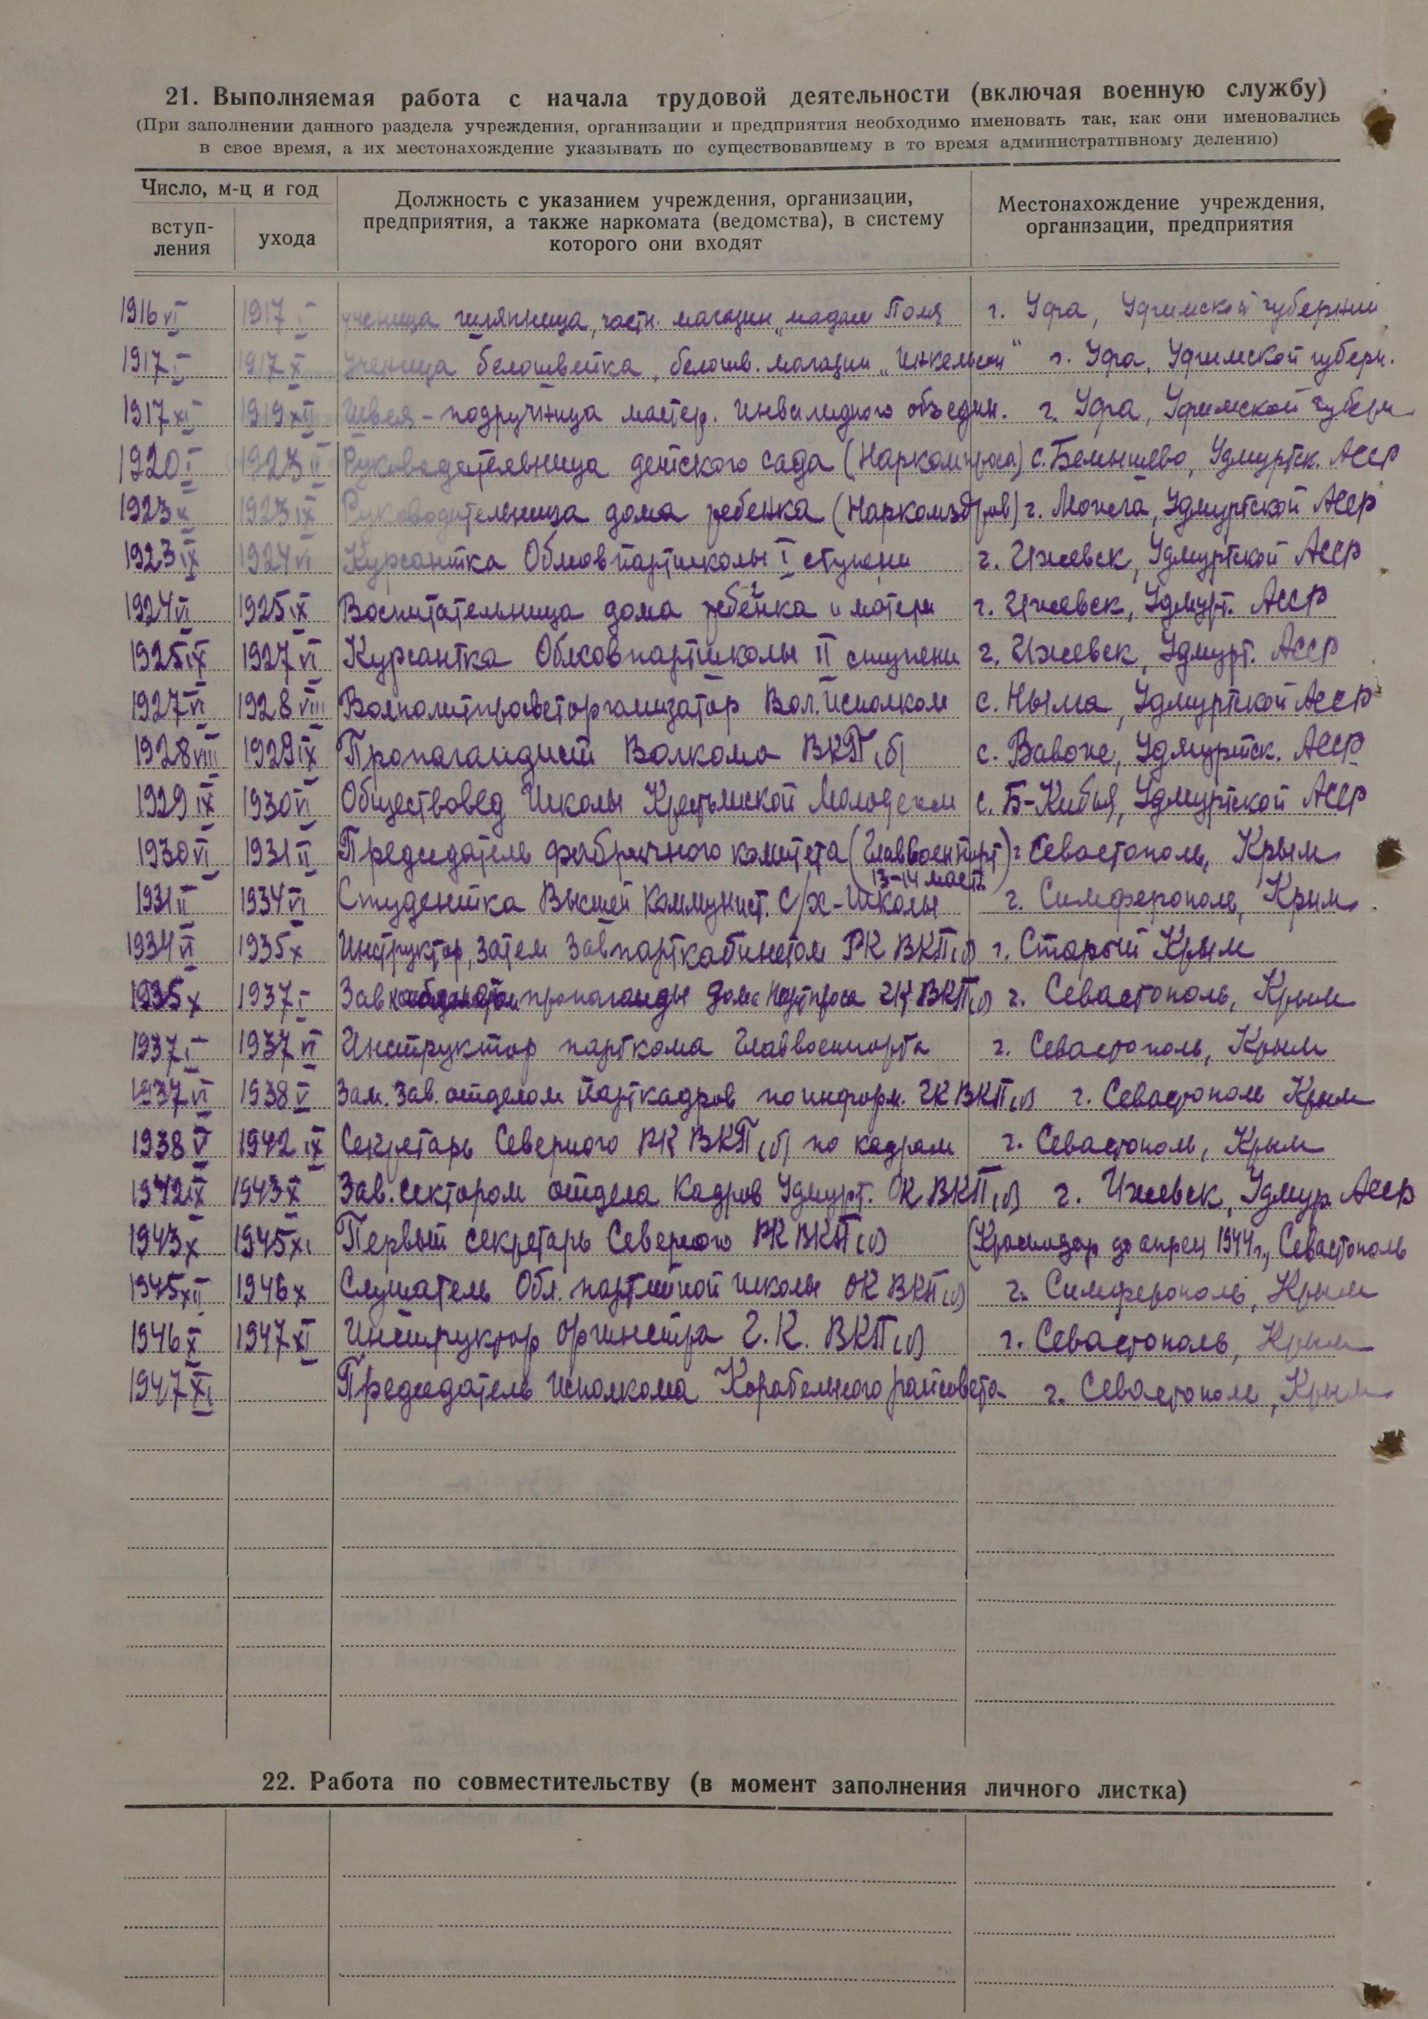 21. Выполняемая работа с начала трудовой деятельности (включая военную службу)
(При заполнении данного раздела учреждения, организации и предприятия необходимо именовать так, как они именовались
в свое время, а их местонахождение указывать по существовавшему в то время административному делению)
Число, м-ц и год
вступ-
ления
ухода
Должность с указанием учреждения, организации,
предприятия, а также наркомата (ведомства), в систему
которого они входят
Местонахождение учреждения,
организации, предприятия
1916 VI 1917 I ученица шляпница, частн. магазин „мадам Поля г. Уфа, Уфимской губернии
1917 I 1917 X Ученица белошвейка, белошв. магазин „Инкельсон" г. Уфа, Уфимской губерн.
1917 XI 1919 XII Швея - подручница мастер. Инвалидного объедин. г. Уфа, Уфимской губерн
1920 I 1923 II Руководительница детского сада (Наркомпроса) с. Бемышево, Удмуртск. АССР
1923 II 1923 IX Руководительница дома ребенка (Наркомздров) г. Можга, Удмуртской АССР
1923 IX 1924 VI Курсантка Облсовпартшколы I ступени г. Ижевск, Удмуртской АССР
1924 VI 1925 IX Воспитательница дома ребенка и матери г. Ижевск, Удмурт. АССР
1925 IX 1927 VI Курсантка Облсовпартшколы II ступени г. Ижевск, Удмурт. АССР
1927 VI 1928 VIII Волполитпросветорганизатор Вол. Исполком с. Нылга, Удмуртской АССР
1928 VIII 1929 IX Пропагандист Волкома ВКП(б) с. Вавоже, Удмуртск. АССР
1929 IX 1930 VI Обществовед Школы Крестьянской Молодежи с. Б-Кибья, Удмуртской АССР
1930 VI 1931 II Председатель фабричного комитета (Главвоенпорт) г. Севастополь, Крым
13-14 маст.
1931 II 1934 VI Студентка Высшей Коммунист. С/х-Школы г. Симферополь, Крым.
1934 VI 1935 X Инструктор, затем Завпарткабинетом РК ВКП(б) г. Старый Крым
1935 X 1937 I Зав пропаганды дома партпроса ГК ВКП(б) г. Севастополь, Крым
1937 I 1937 VI Инструктор парткома Главвоенпорта г. Севастополь, Крым
1937 VI 1938 V Зам. Зав. отделом Парткадров по информ. ГК ВКП(б) г. Севастополь Крым
1938 V 1942 IX Секретарь Северного РК ВКП(б) по кадрам г. Севастополь, Крым
1942 IX 1943 X Зав. Сектором отдела Кадров Удмурт. ОК ВКП(б) г. Ижевск, Удмур АССР
1943 X 1945 XI Первый секретарь Северного РК ВКП(б) (Краснодар до апрел 1944 г., Севастополь
1945 XII 1946 X Слушатель Обл. партийной школы ОК ВКП(б) г. Симферополь, Крым
1946 X 1947 XI Инструктор оргинстра Г.К. ВКП(б) г. Севастополь, Крым
1947 XI Председатель Исполкома Корабельного райсовета г. Севастополь, Крым
22. Работа по совместительству (в момент заполнения личного листка)